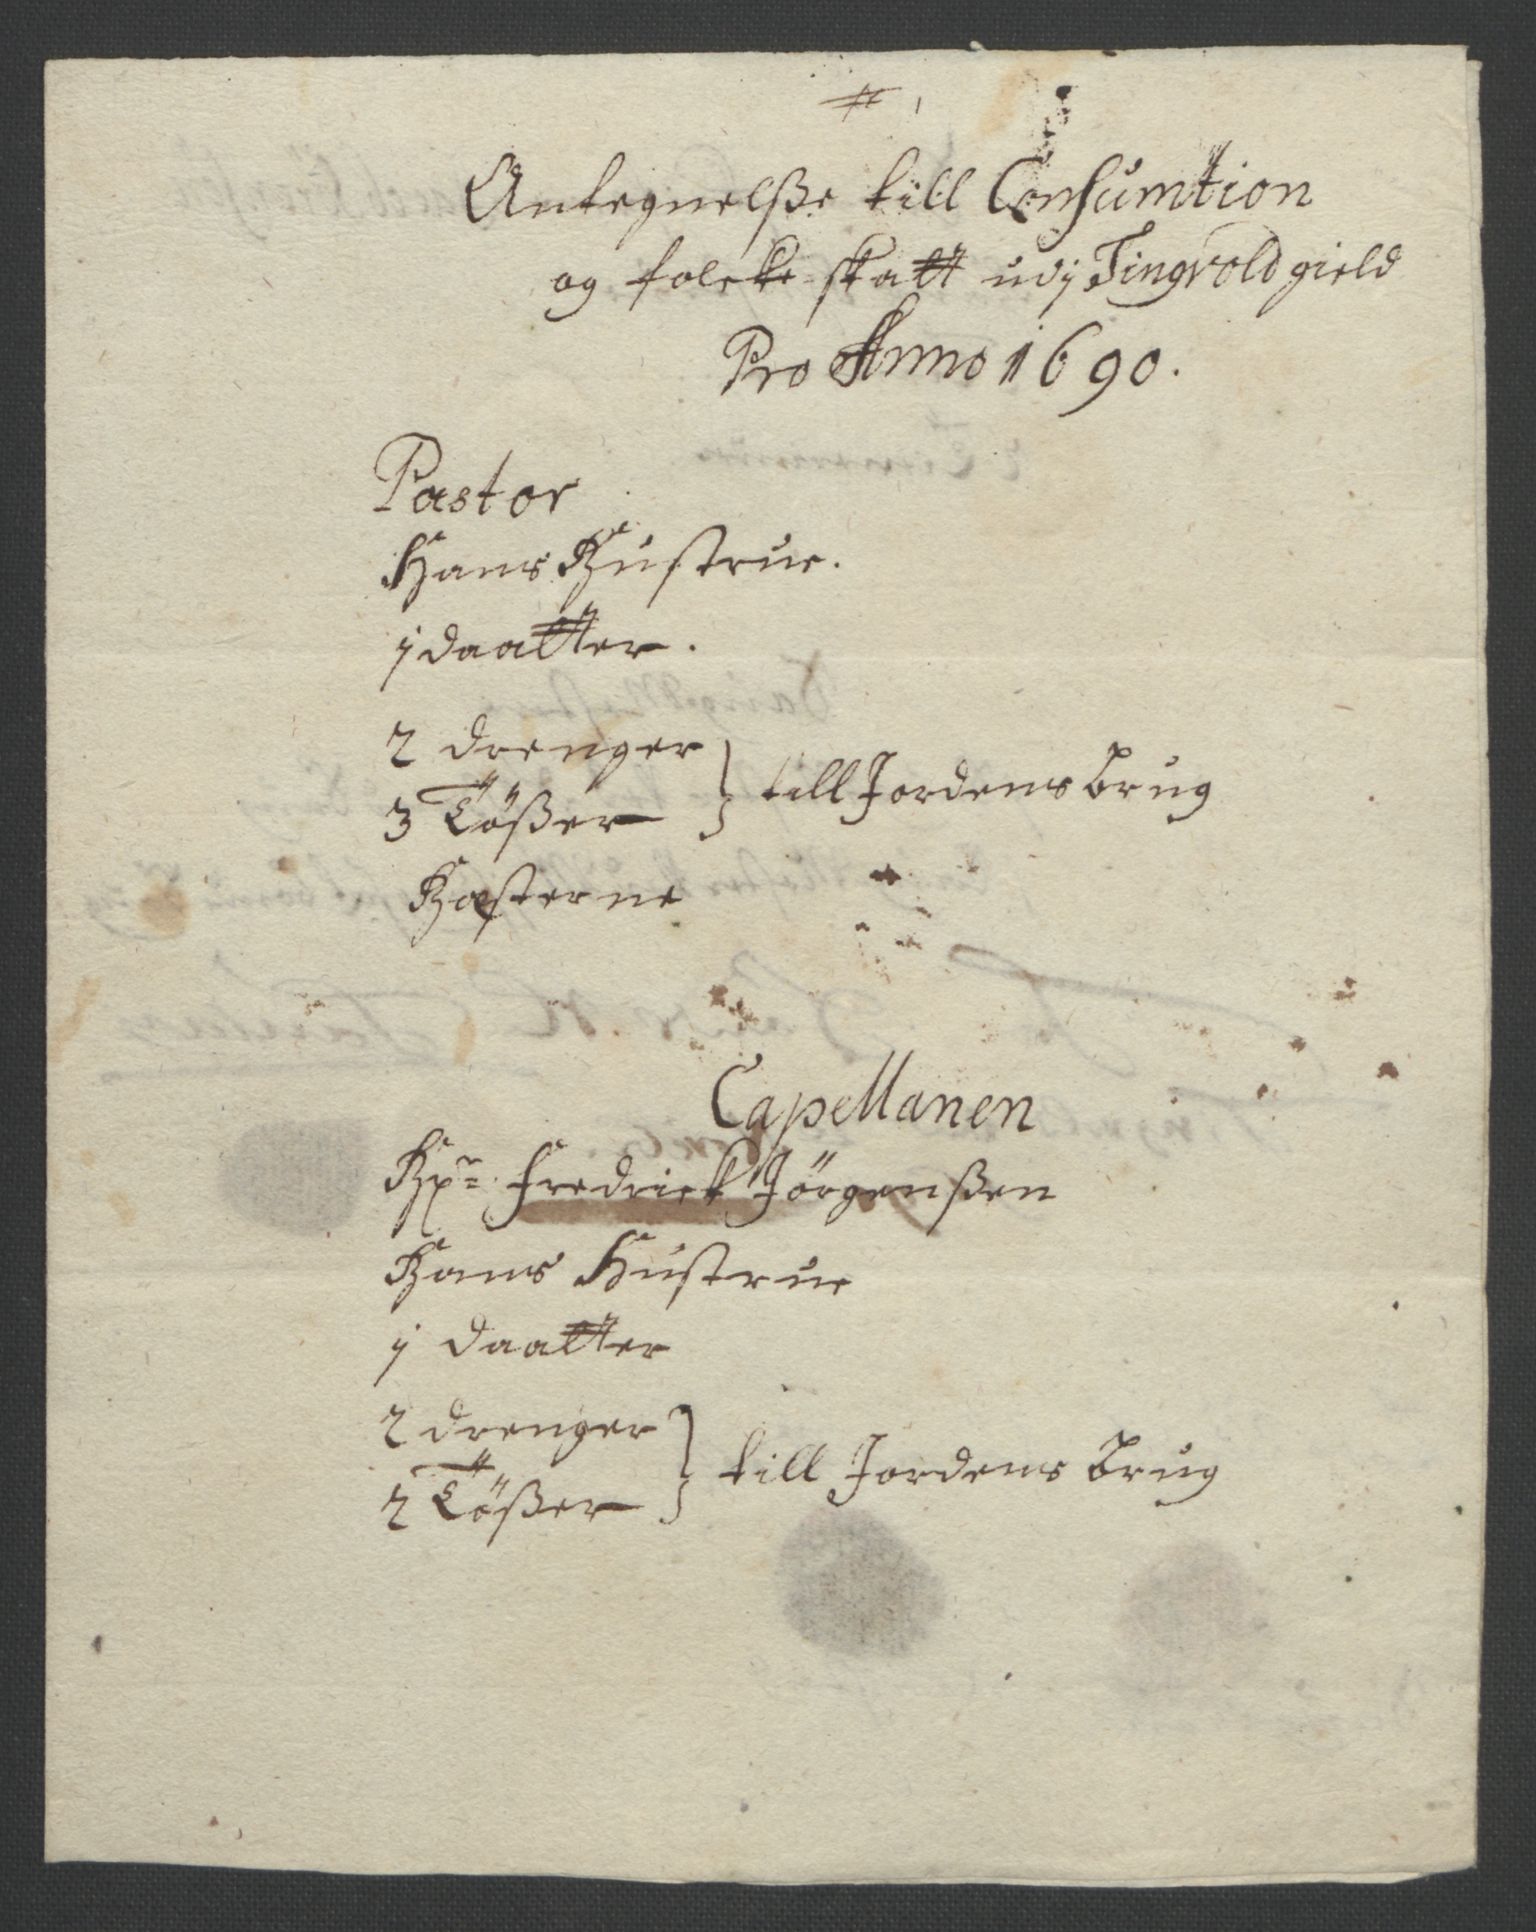 Antegnelsße till Consumtion
og folcke skatt udj Tingvold gield
Pro Anno 1690.
Pastor
Hans Hustrue.
j daatter.
2 drenger
3 Tößer } till Jordens brug
Capellanen
Hr: Fredrick Jörgenßen
Hans Hustrue
j daatter
2 drenger
2 Tößer } till Jordens brug